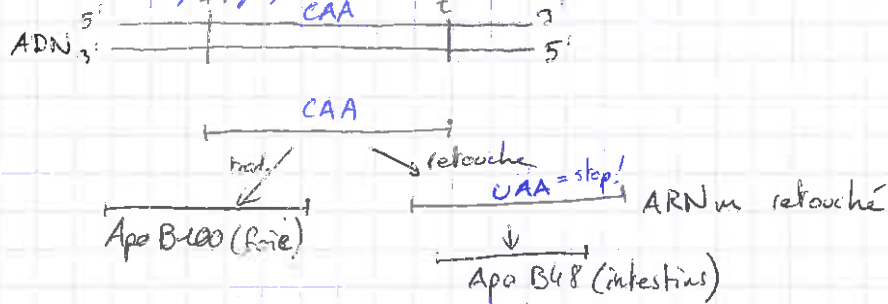 5' CAA t 3'
ADN 3' 5'
CAA
trad. retouche
UAA = stop!
ARNm retouché
Apo B100 (foie)
Apo B48 (intestins)